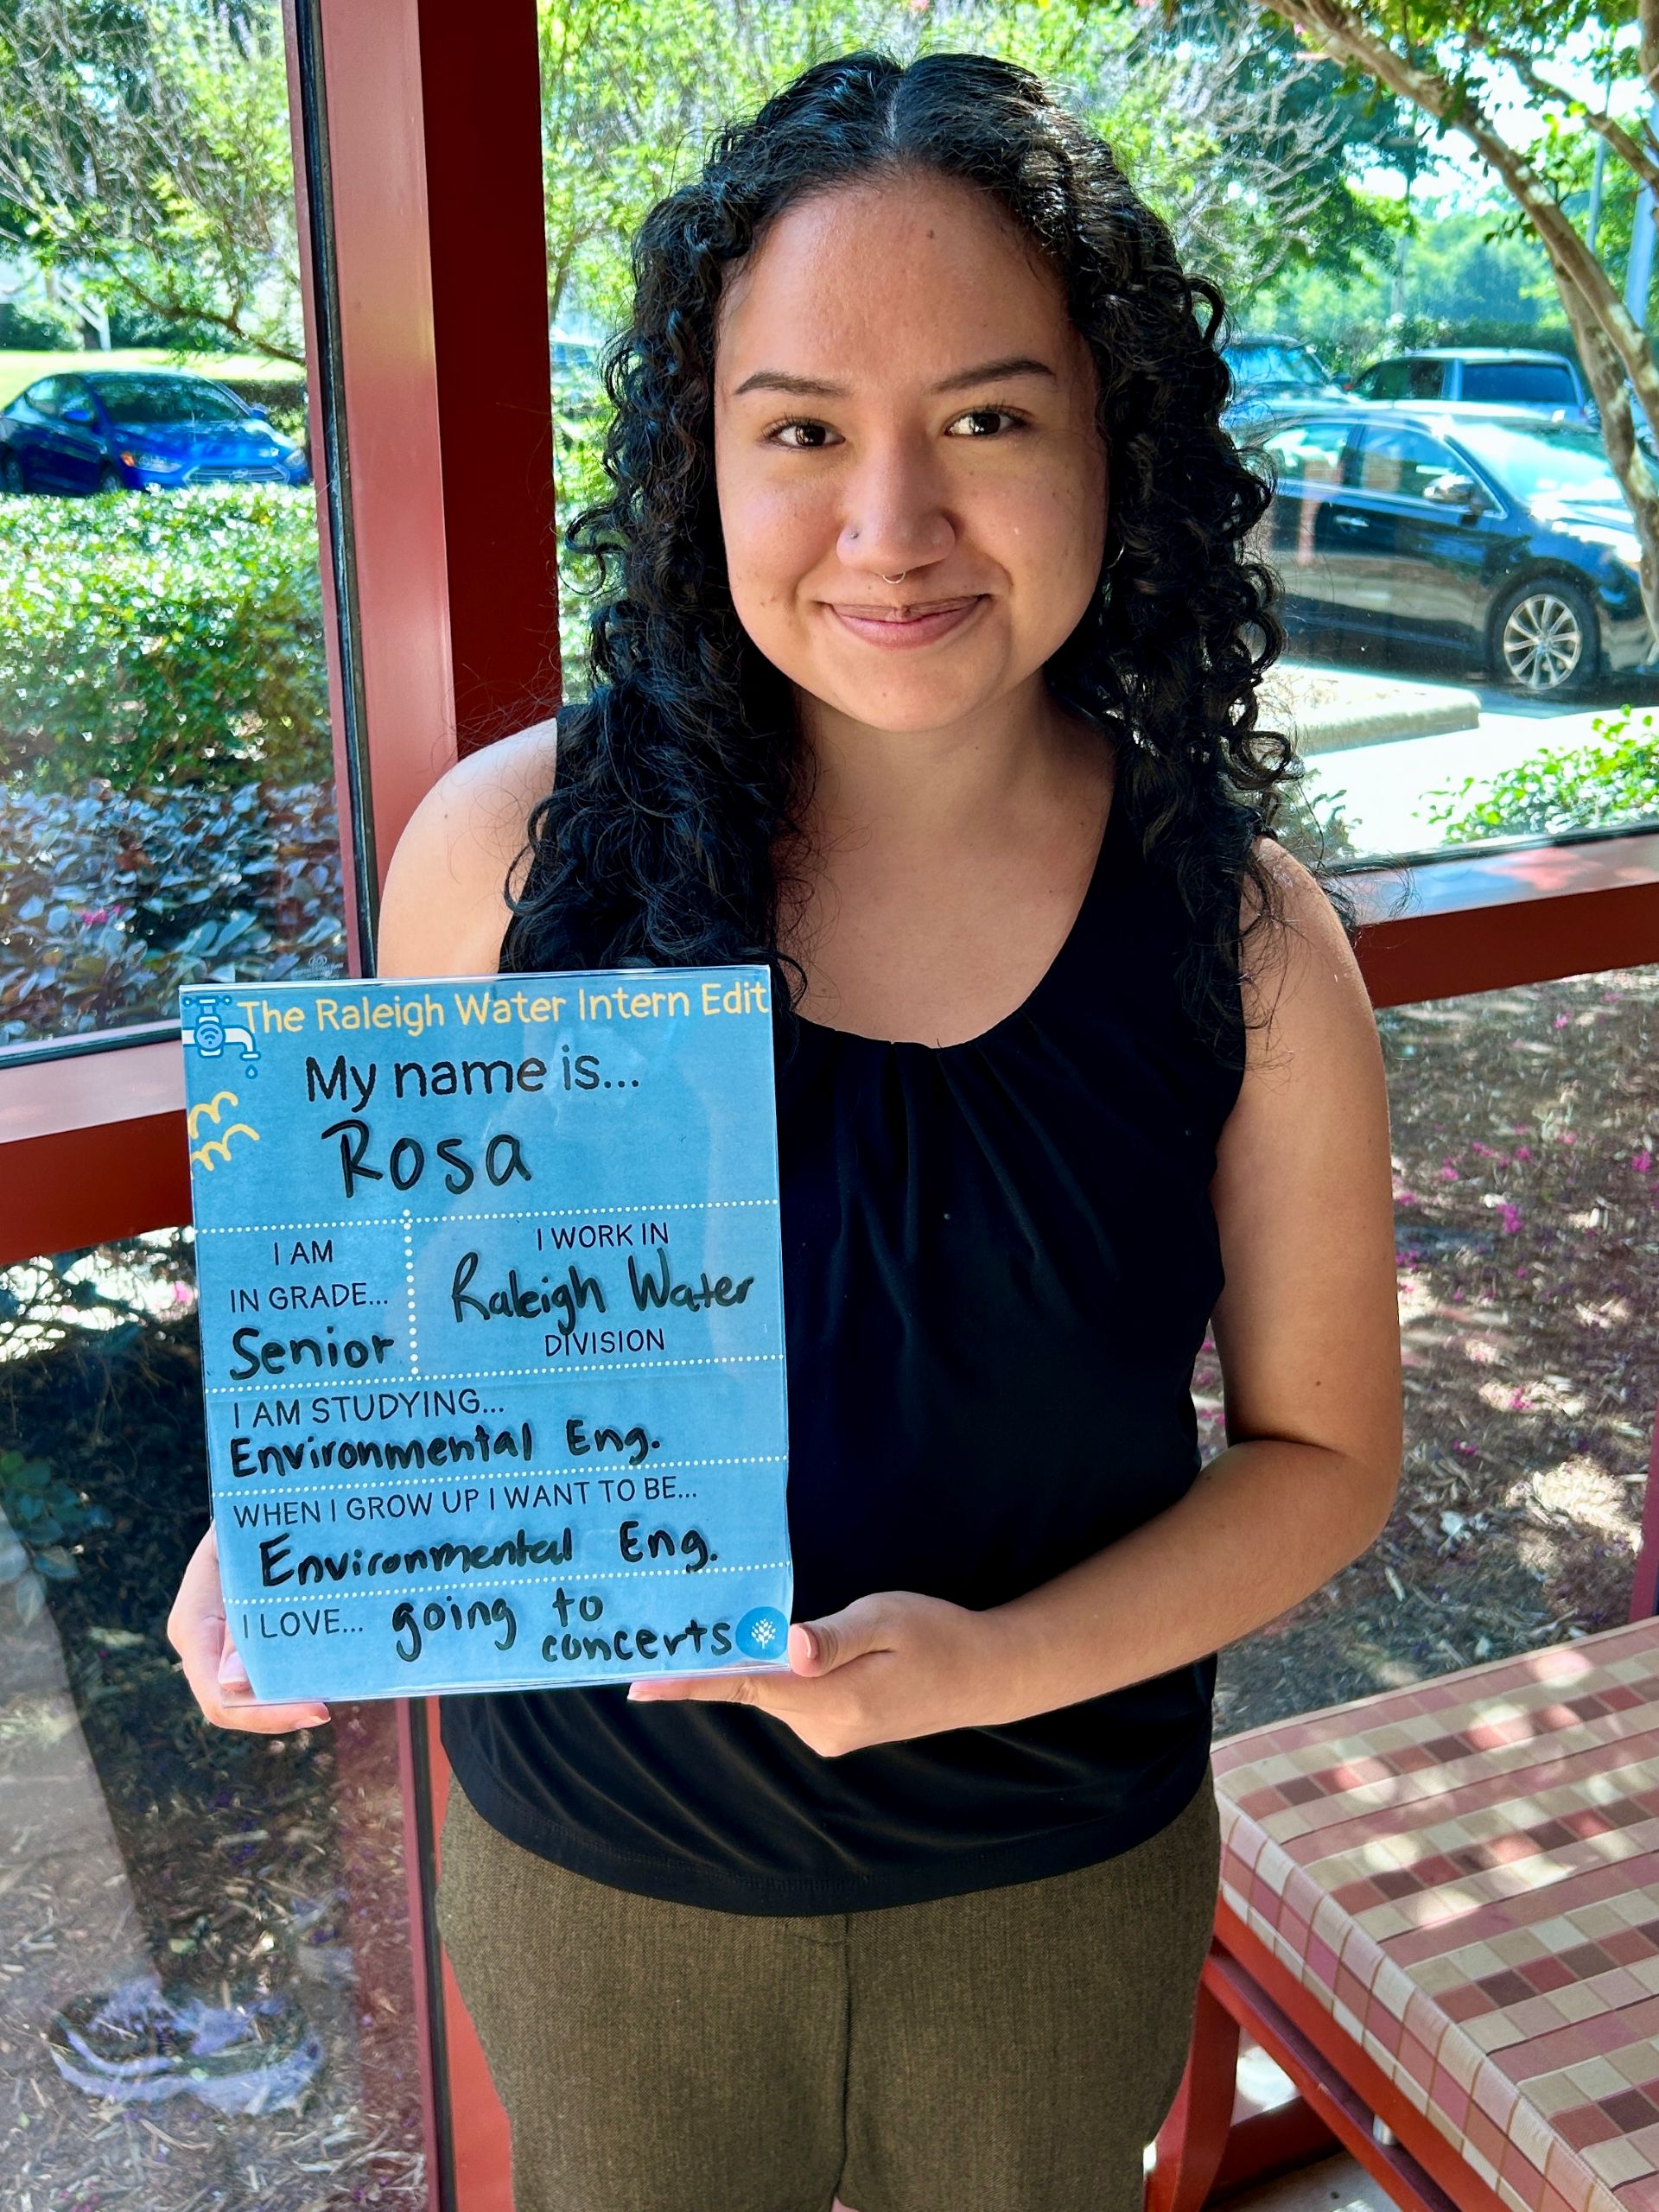 The Raleigh Water Intern Edit
My name is...
Rosa
I AM
IN GRADE...
Senior
I WORK IN
Raleigh Water
DIVISION
I AM STUDYING...
Environmental Eng.
WHEN I GROW UP I WANT TO BE...
Environmental Eng.
I LOVE... going to
concerts